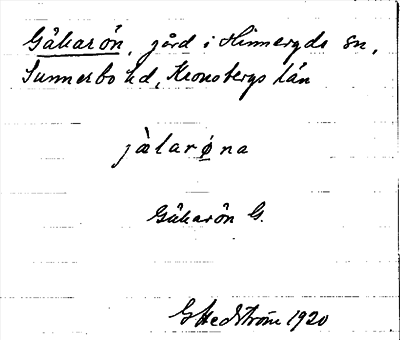 Gåkarön, gård i Hinneryds sn,
Sunnerbo hd, Kronobergs län
jàlarøna
Gåkarön G.
G Hedström 1920